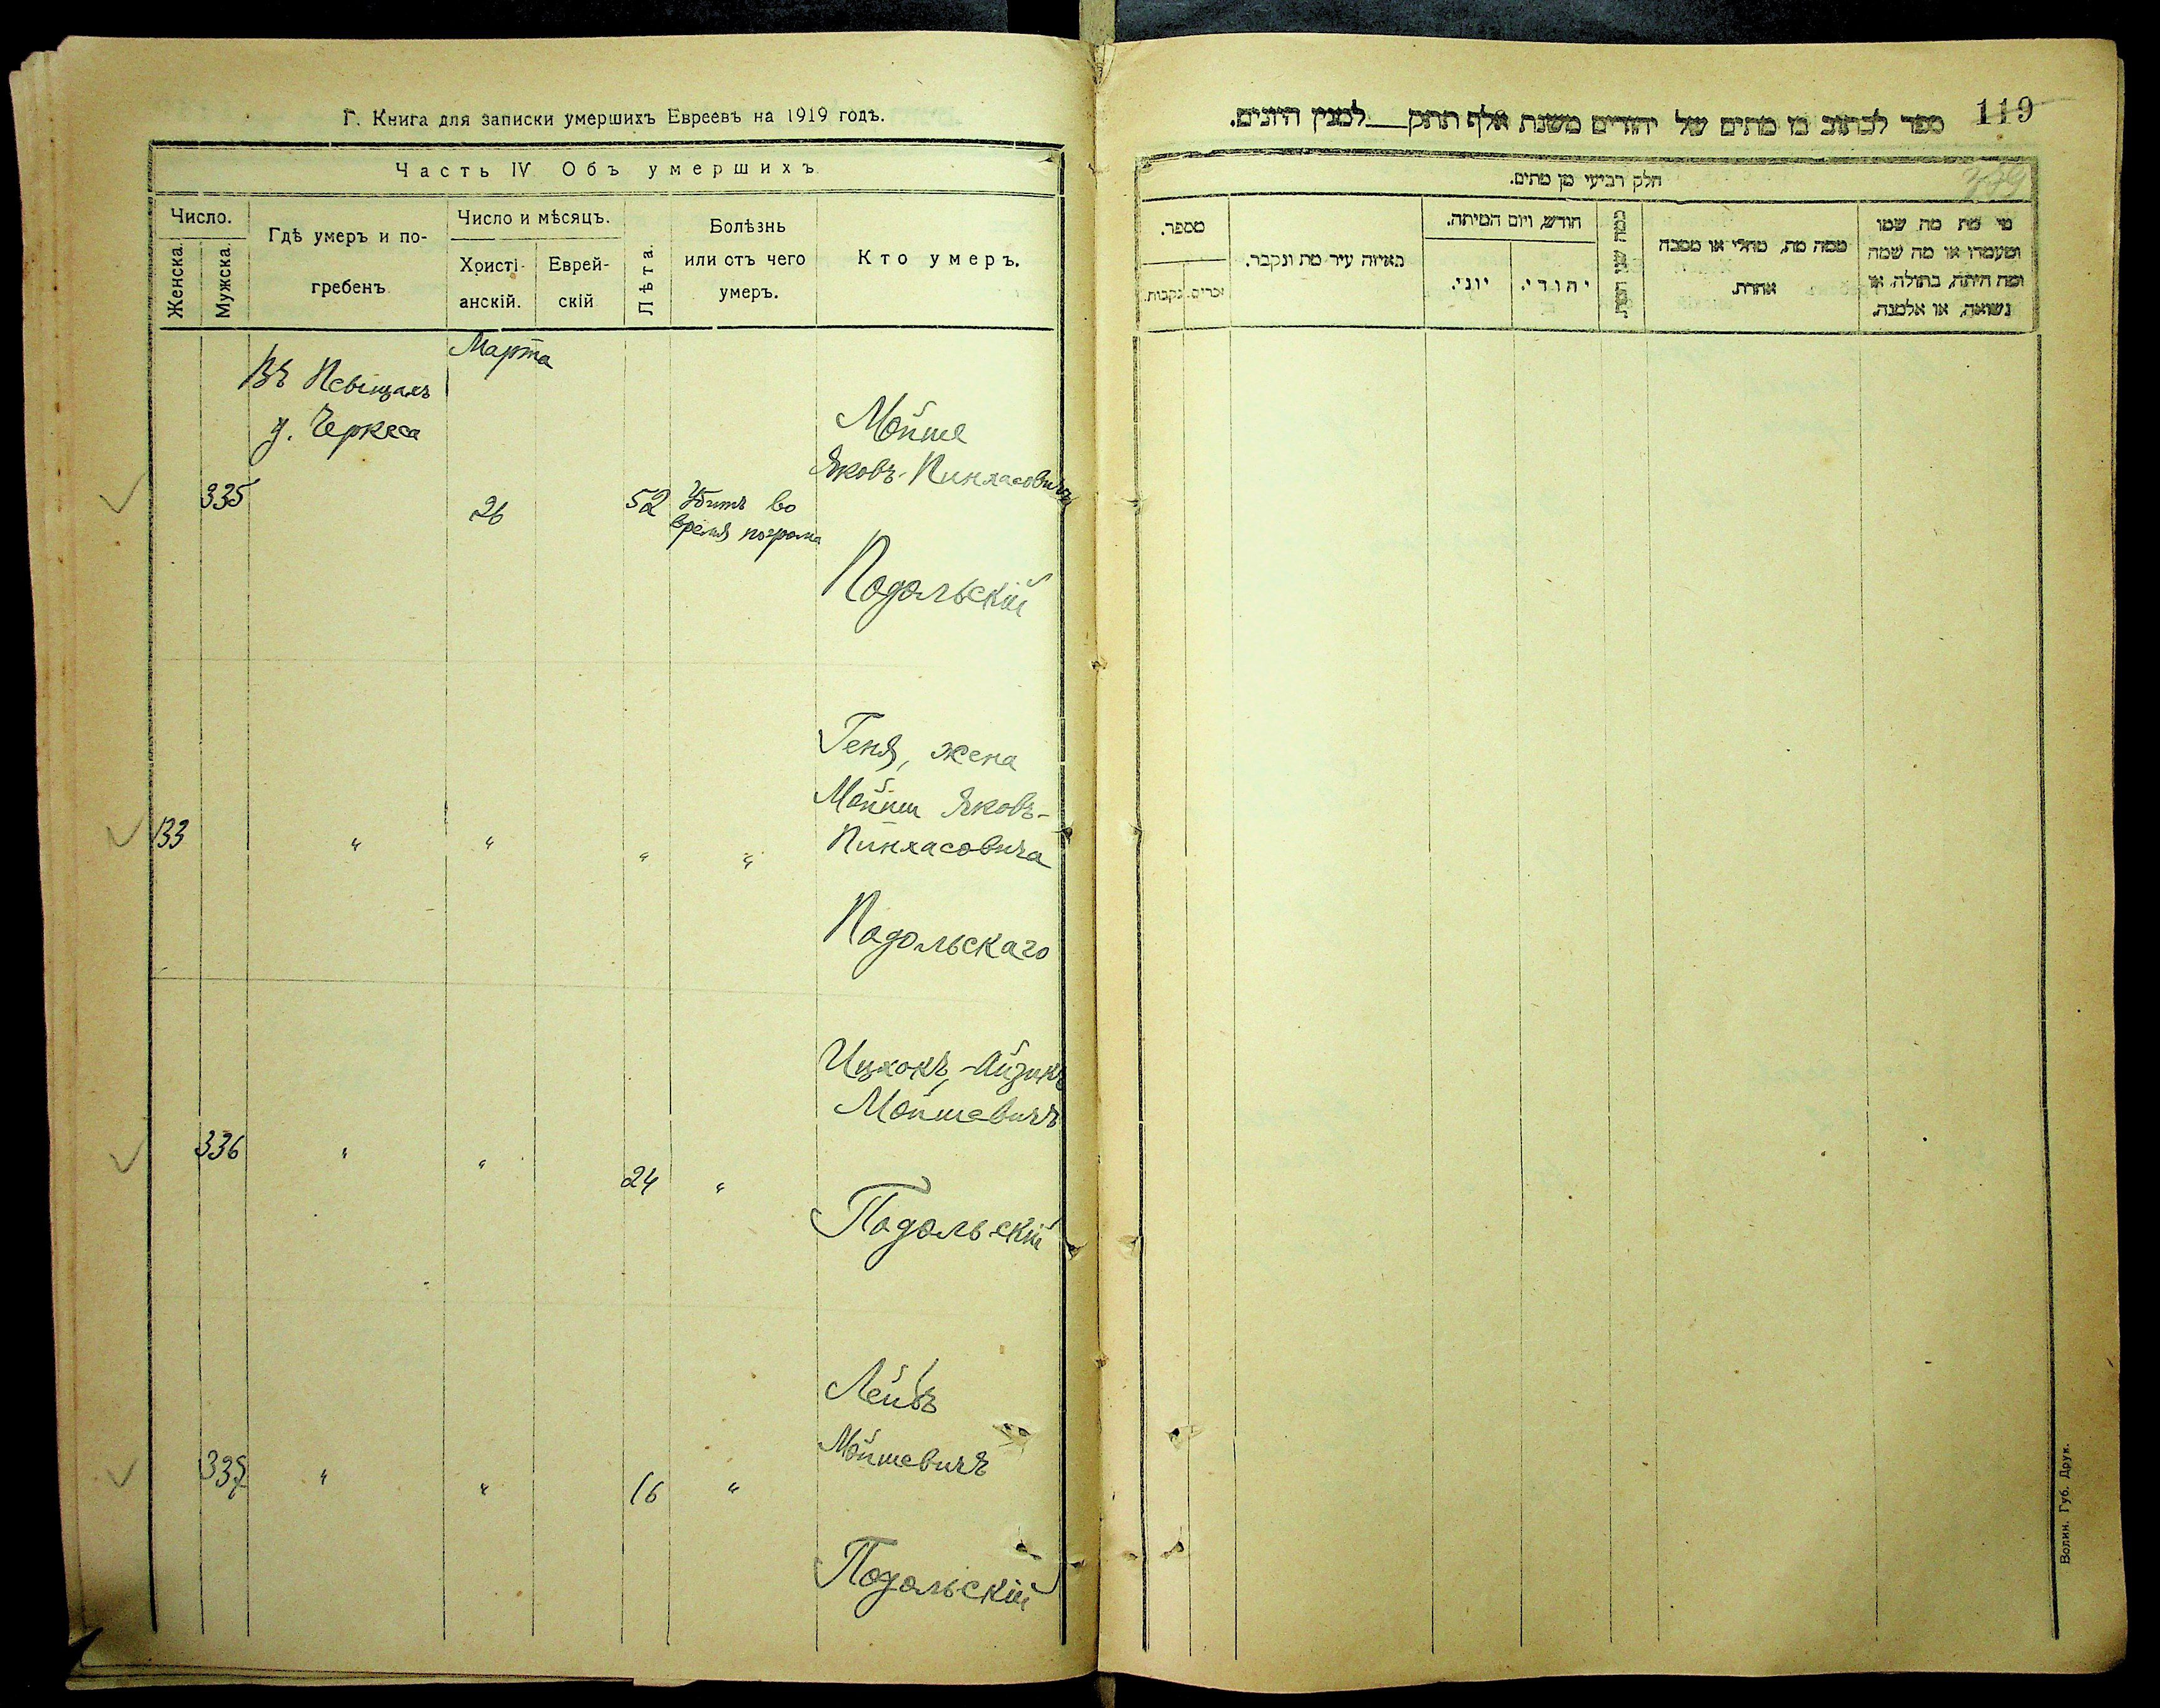 Г. Книга для записки умершихъ Евреевъ на 1919 годъ.
Часть IV Объ умершихъ
Число.
Женска.
Мужска.
Гдѣ умеръ и по-
гребенъ
Число и мѣсяцъ.
Христі-
анскій.
Еврей-
скій
Лѣта.
Болѣзнь
или отъ чего
умеръ.
Кто умеръ.
Марта
Въ
д. Черкеса
335
26
52
Убитъ во
время погрома
Мойше
Яковъ-Пинхасовичъ
Подольскій
133
"
"
"
"
Геня, жена
Мойши Яковъ-
Пинхасовича
Подольскаго
336
"
"
24
"
Ицхокъ-Айзикъ
Мойшевичъ
Подольскій
337
"
"
16
"
Лейбъ
Мойшевичъ
Подольскій
119
ספר לכתוב בו מתים של יהודים משנת אלף תתק למנין היונים.
חלק רביעי מן מתים.
מספר.
זכרים.
נקבות.
באיזה עיר מת ונקבר.
חודש, ויום המיתה.
יוני.
יהודי.
ממה מת, מחלי או מסבה
אחרת.
מי מת מה שמו
ומעמדו או מה שמה
ומה היתה, בתולה או
נשואה, או אלמנה.
Волин. Губ. Друк.